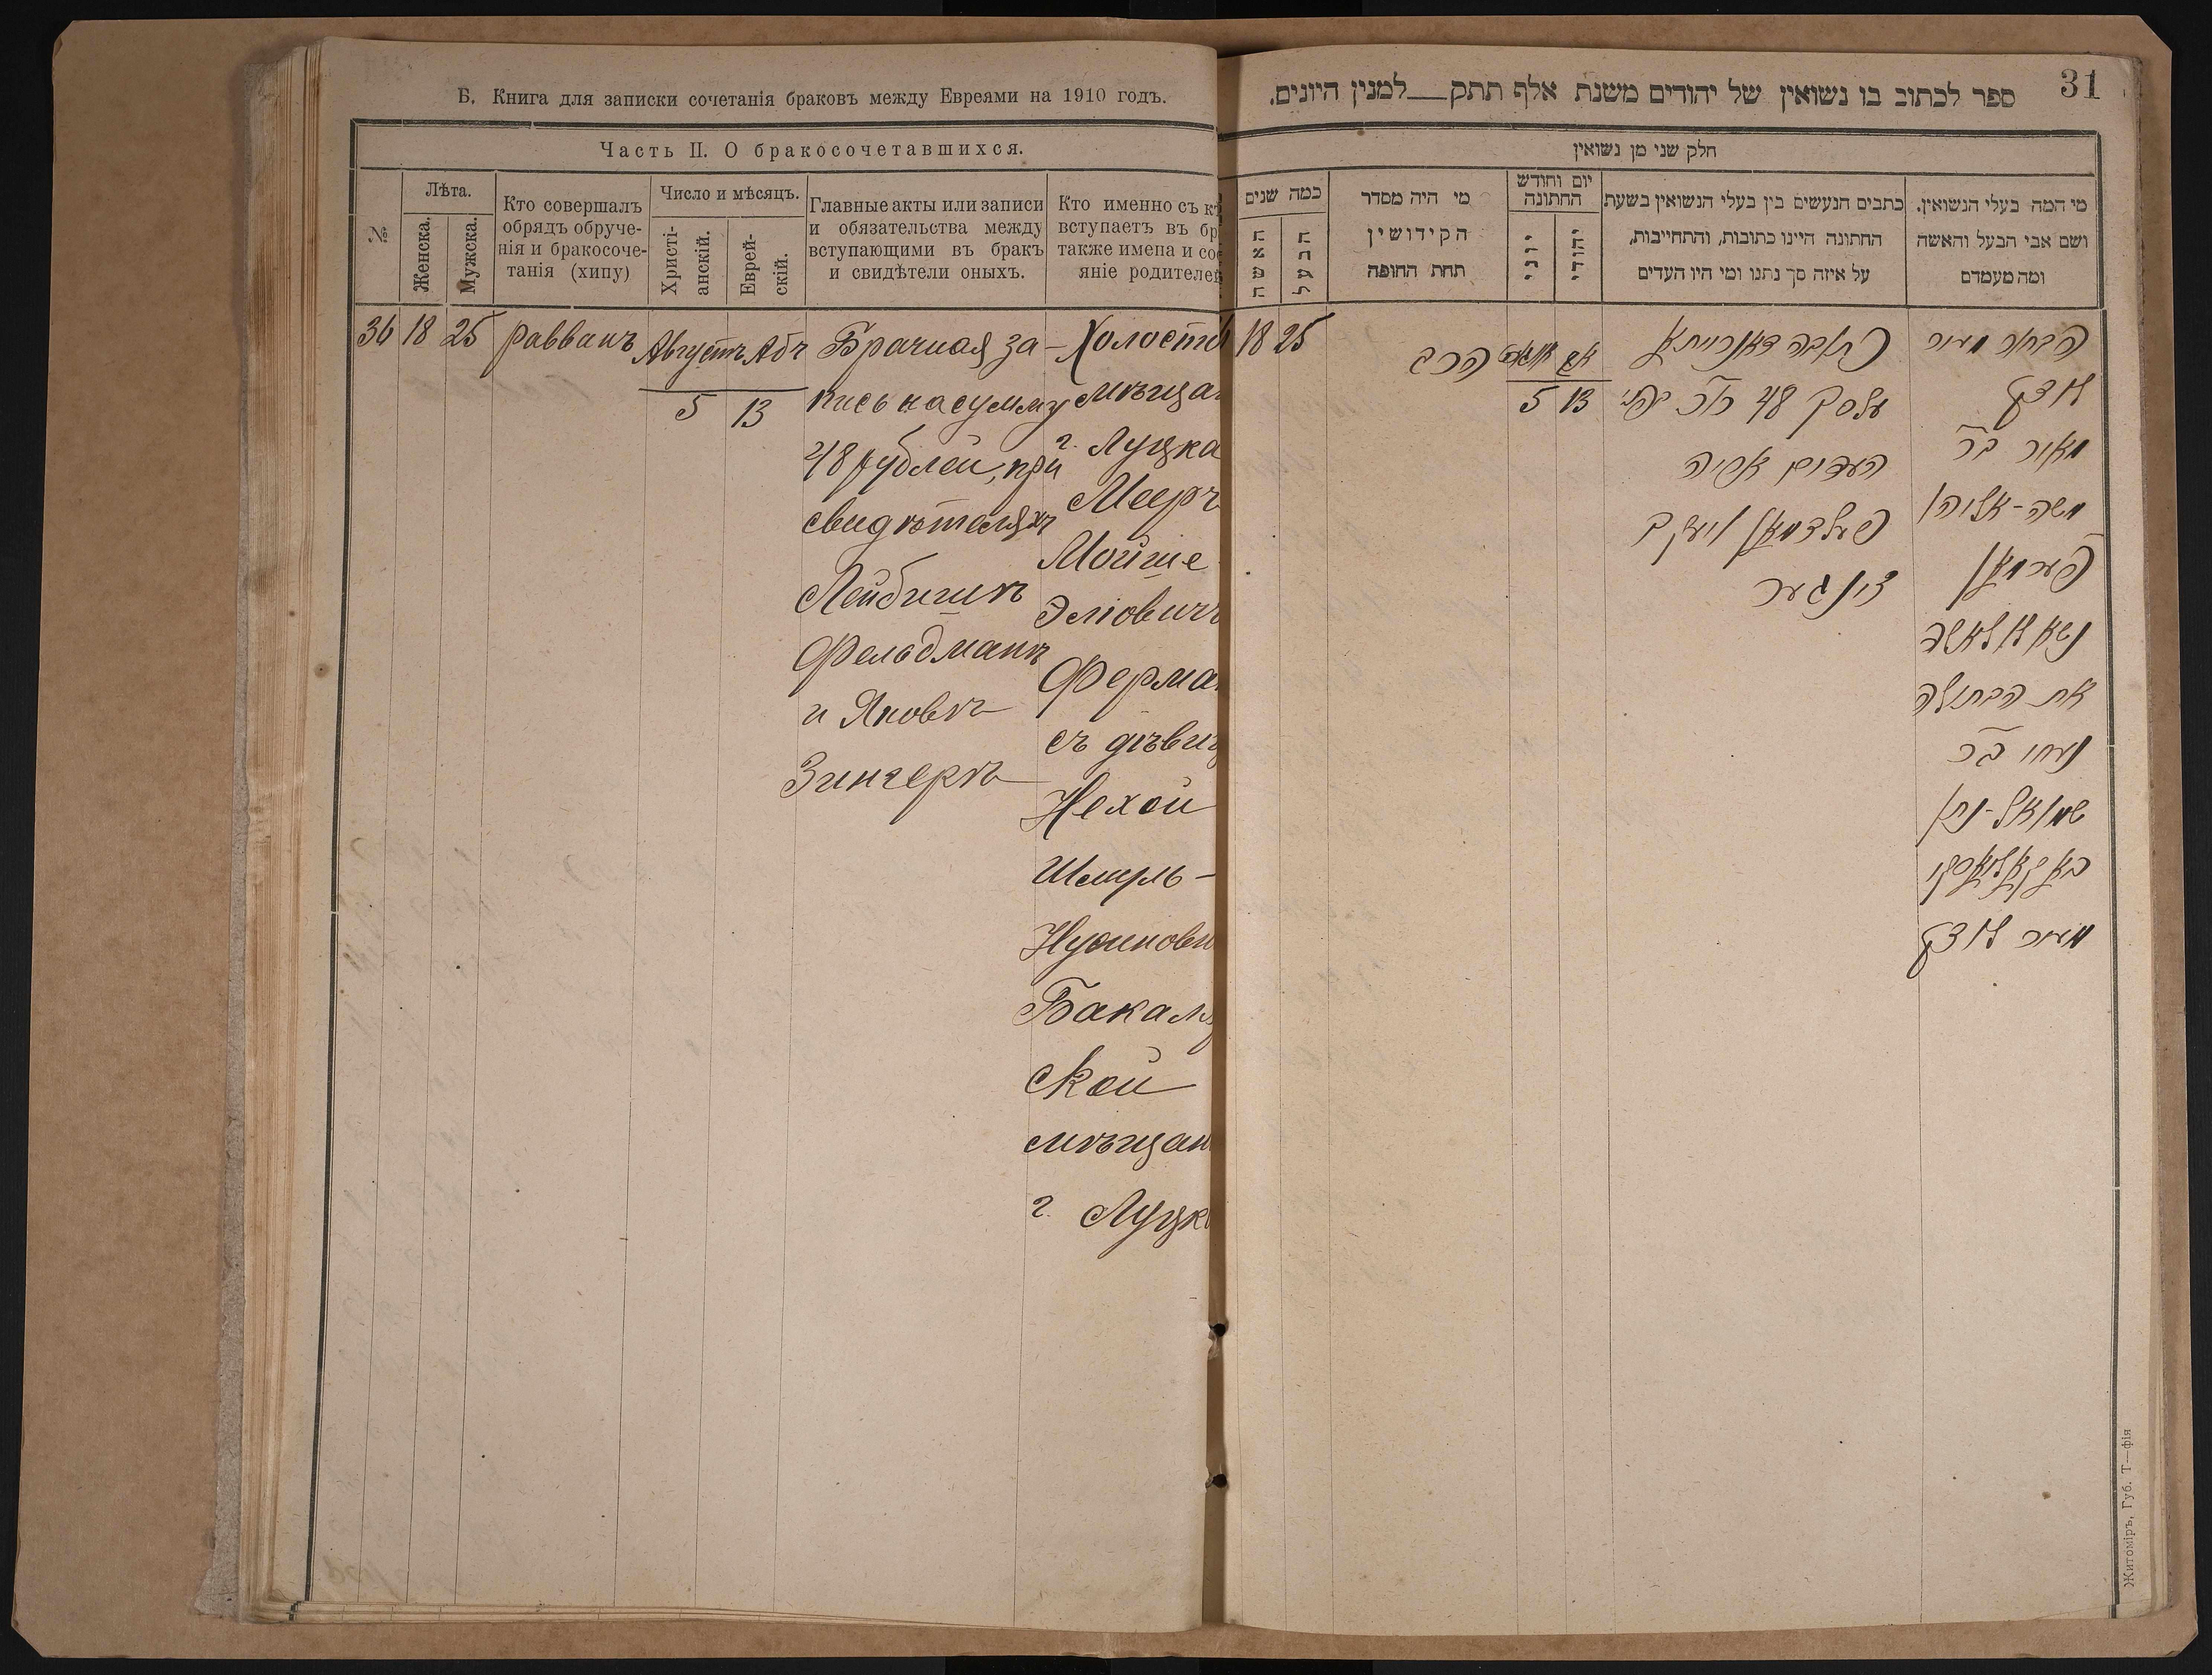 Б. Книга для записки сочетанія браковъ между Евреями на 1910 годъ.
Часть II. О бракосочетавшихся.
№
Лѣта.
Женска.
Мужска.
Кто совершалъ
обрядъ обруче-
нія и бракосоче-
танія (хипу)
Число и мѣсяцъ.
Христі-
анскій.
Еврей-
скій.
Главные акты или записи
и обязательства между
вступающими въ бракъ
и свидѣтели оныхъ.
Кто именно съ к
вступаетъ въ бр
также имена и сос
яніе родителей
36
18
25
раввинъ
Августъ
5
Абъ
13
Брачная за-
пись на сумму
48 рублей, при
свидѣтеляхъ
Лейбишъ
Фельдманъ
и Яковъ
Зингеръ
Холосты
мѣщан
г. Луцка
Мееръ
Мойше-
Эліовичъ
Ферма
съ дѣвиц
Нехой
Шмуль-
Нусинови
Бакаля
ской
мѣщан
г. Луцка
31
ספר לכתוב בו נשואין של יהודים משנת אלף תתק__למנין היונים.
חלק שני מן נשואין
כמה שנים
האשה
הבעל
מי היה מסדר
הקידושין
תחת החופה
יום וחודש
החתונה
יוני
יהודי
כתבים הנעשים בין בעלי הנשואין בשעת
החתונה היינו כתובות, והתחייבות,
על איזה סך נתנו ומי היו העדים
מי המה בעלי הנשואין.
ושם אבי הבעל והאשה
ומה מעמדם
18
25
הרב
אוגוסט
5
אב
13
כתובה דאורייתא
על סך 48 רו״כ
העדים
פעלדמאן ויעקב
זינגער
הבחור מעיר
לוצק
מאיר ב״ר
משה-אליהו
פערמאן
נשא לו לאשה
את הבתולה
נעחי ב״ר
שמואל-נתן
באקאליאסקי
מעיר לוצק
Житоміръ, Губ. Т—фія